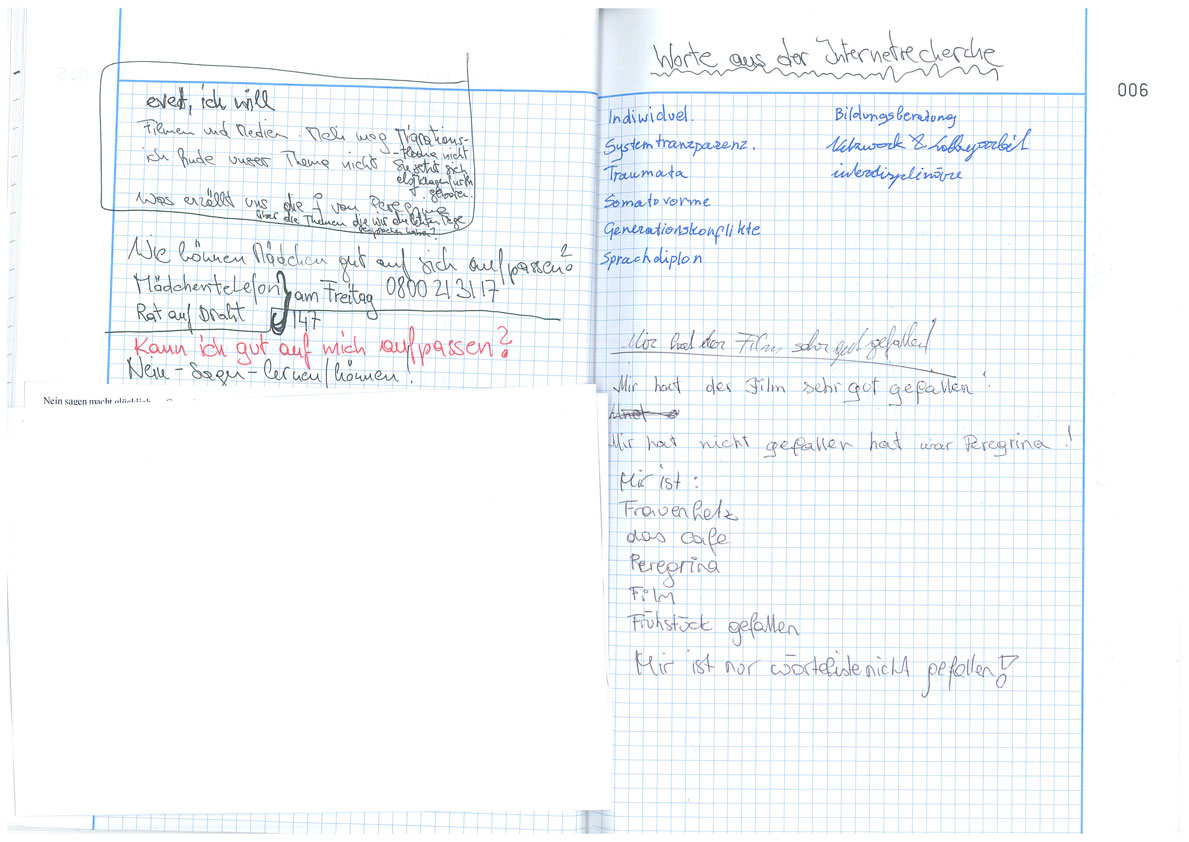 evet, ich will
Filmen und Medien. Meli mag Migrations-
-thema nicht
ich finde unser Thema nicht
Sie setzt sich
geboren.
Was erzählt uns die von Peregrina
über die Themen die wir die letzten Tage
gesprochen haben?
Wie können Mädchen gut auf sich aufpassen?
Mädchentelefon am Freitag 0800 21 31 17
Rat auf Draht 147
Kann ich gut auf mich aufpassen?
Nein-Sagen-lernen/können!
Nein sagen macht glücklich
Worte aus der Internetrecherche
006
Indiwiduel.
Systemtranzparenz.
Traumata
Somatovorme
Generationskonflikte
Sprachdiplon
Bildungsberatung
Mir hat der Film sehr gut gefallen!
Mir hat der Film sehr gut gefallen!
Mir hat nicht gefallen hat war Peregrina!
Mir ist:
Frauenhetz
das cafe
Peregrina
Film
Frühstück gefallen
Mir ist nur wörteliste nicht gefallen!